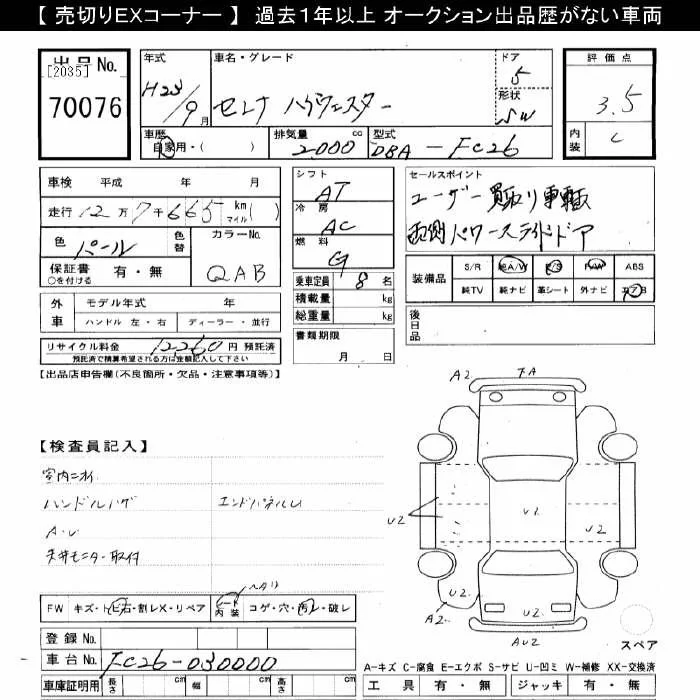 【 売切りEXコーナー 】 過去1年以上 オークション出品歴がない車両
出品 No.
[2035]
70076
年式
H23/9月
車名・グレード
セレナ ハイウェスター
ドア
5
形状
SW
評価点
3.5
内装
C
車歴
自家用・( )
排気量
2000 cc
型式
DBA-FC26
車検 平成 年 月
走行 12万7千665 km マイル( )
色
パール
色替
カラーNo.
QAB
保証書 有・無
○を付ける
シフト
AT
冷房
AC
燃料
G
乗車定員 8 名
積載量 kg
総重量 kg
書類期限
月 日
セールスポイント
ユーザー買取り車輌
両側パワースライドドア
装備品
S/R 純A/W P/S P/W ABS
純TV 純ナビ 革シート 外ナビ エアB
後日品
外車
モデル年式 年
ハンドル 左・右 ディーラー・並行
リサイクル料金 12260 円 預託済
預託済で積算希望される方は金額記入して下さい
【出品店申告欄(不良箇所・欠品・注意事項等)】
【検査員記入】
室内ニオイ
ハンドルハゲ エンドパネルU
A・U
天井モニター取付
FW キズ・トビ石・割レX・リペア
シート内装
コゲ・穴・汚レ・破レ
登録 No.
車台 No. FC26-030000
車庫証明用 長さ cm 幅 cm 高さ cm
A2
FA
U2
U2
U2
U2
U2
A2
AU2
スペア
A-キズ C-腐食 E-エクボ S-サビ U-凹ミ W-補修 XX-交換済
工具 有・無 ジャッキ 有・無